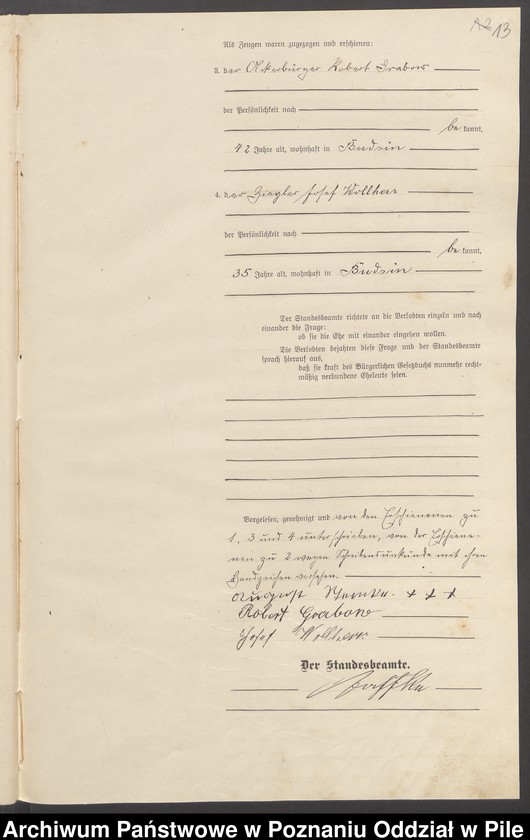 13
Als Zeugen waren zugezogen und erschienen:
3. der Ackerbürger Robert Grabow
der Persönlichkeit nach
be kannt,
42 Jahre alt, wohnhaft in Budsin
4. der Ziegler Josef Wollherr
der Persönlichkeit nach
be kannt,
35 Jahre alt, wohnhaft in Budsin
Der Standesbeamte richtete an die Verlobten einzeln und nach
einander die Frage:
ob sie die Ehe mit einander eingehen wollen.
Die Verlobten bejahten diese Frage und der Standesbeamte
sprach hierauf aus,
daß sie kraft des Bürgerlichen Gesetzbuchs nunmehr recht-
mäßig verbundene Eheleute seien.
Vorgelesen, genehmigt und von den Erschienenen zu
1, 3 und 4 unterschrieben, von der Erschiene-
nen zu 2 wegen Schreibensunkunde mit ihrem
Handzeichen versehen.
August + + +
Robert Grabow
Josef Wollherr
Der Standesbeamte.
Archiwum Państwowe w Poznaniu Oddział w Pile